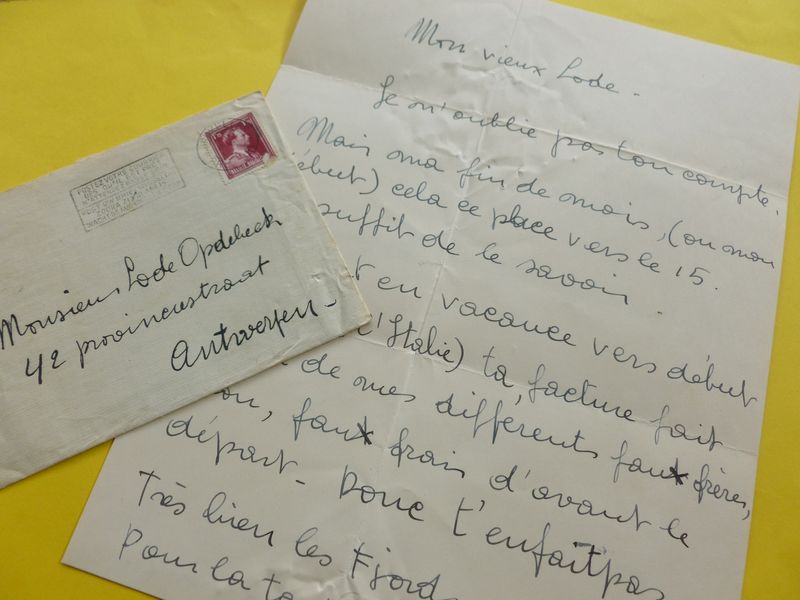 Monsieur Lode Opdebeek
42 provinciestraat
Antwerpen -
Mon vieux Lode -
Je n'oublie pas ton compte.
Mais ma fin de mois, (ou mon
ébut) cela ce place vers le 15.
suffit de le savoir.
t en vacance vers début
l'Italie) ta facture fait
de mes différents faux frères,
on, faux frais d'avant le
départ - Donc t'en fait pas
Très bien les Fjords
Pour la